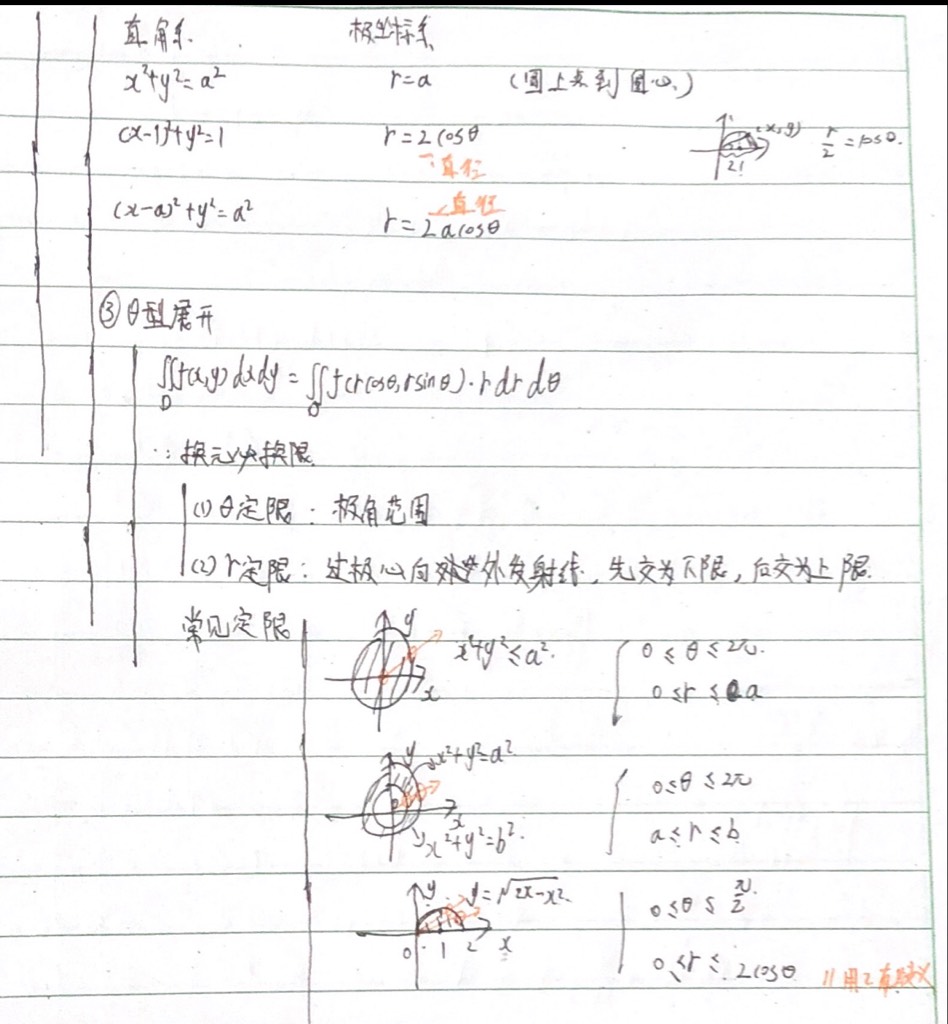 直角系 极坐标系
x²+y²=a² r=a (圆上点到圆心)
(x-1)²+y²=1 r=2cosθ (x,y) r/2=cosθ.
直径
直径
(x-a)²+y²=a² r=2acosθ
③θ型展开
∬f(x,y)dxdy=∬f(rcosθ,rsinθ)·rdrdθ
D
∵换元必换限
(1)θ定限:极角范围
(2)r定限:过极心向外发射线,先交为下限,后交为上限.
常见定限
y x x²+y²≤a². 0≤θ≤2π.
0≤r≤a
y x²+y²=a² 0≤θ≤2π
x x²+y²=b². a≤r≤b
y y=√2x-x². 0≤θ≤π/2
0 1 2 x 0≤r≤2cosθ